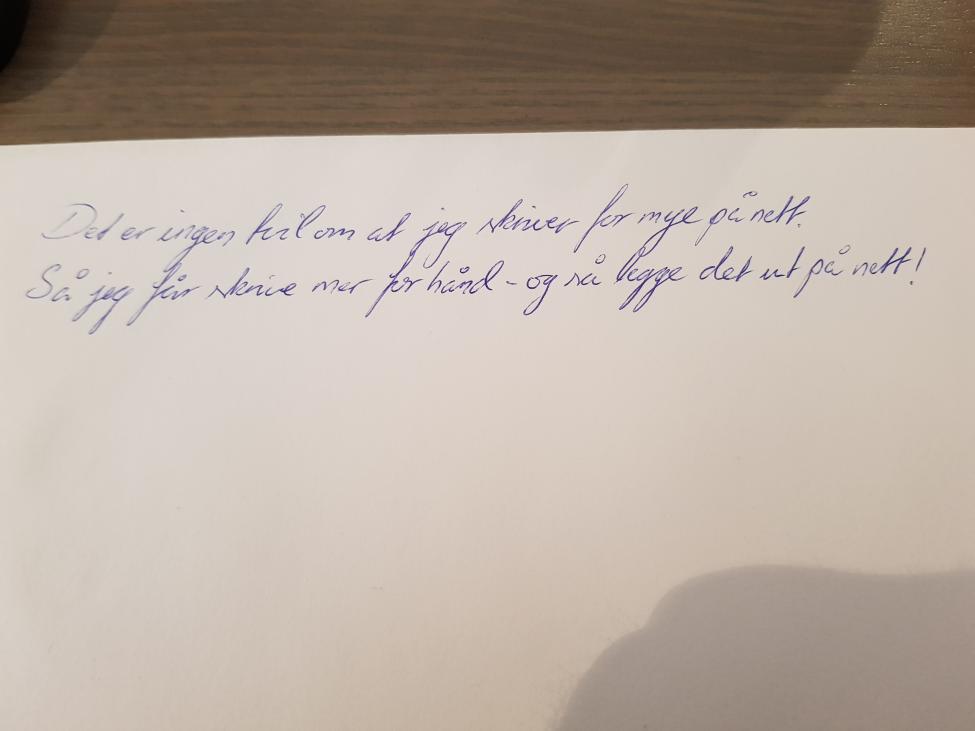 Det er ingen tvil om at jeg skriver for mye på nett.
Så jeg får skrive mer for hånd - og så legge det ut på nett!